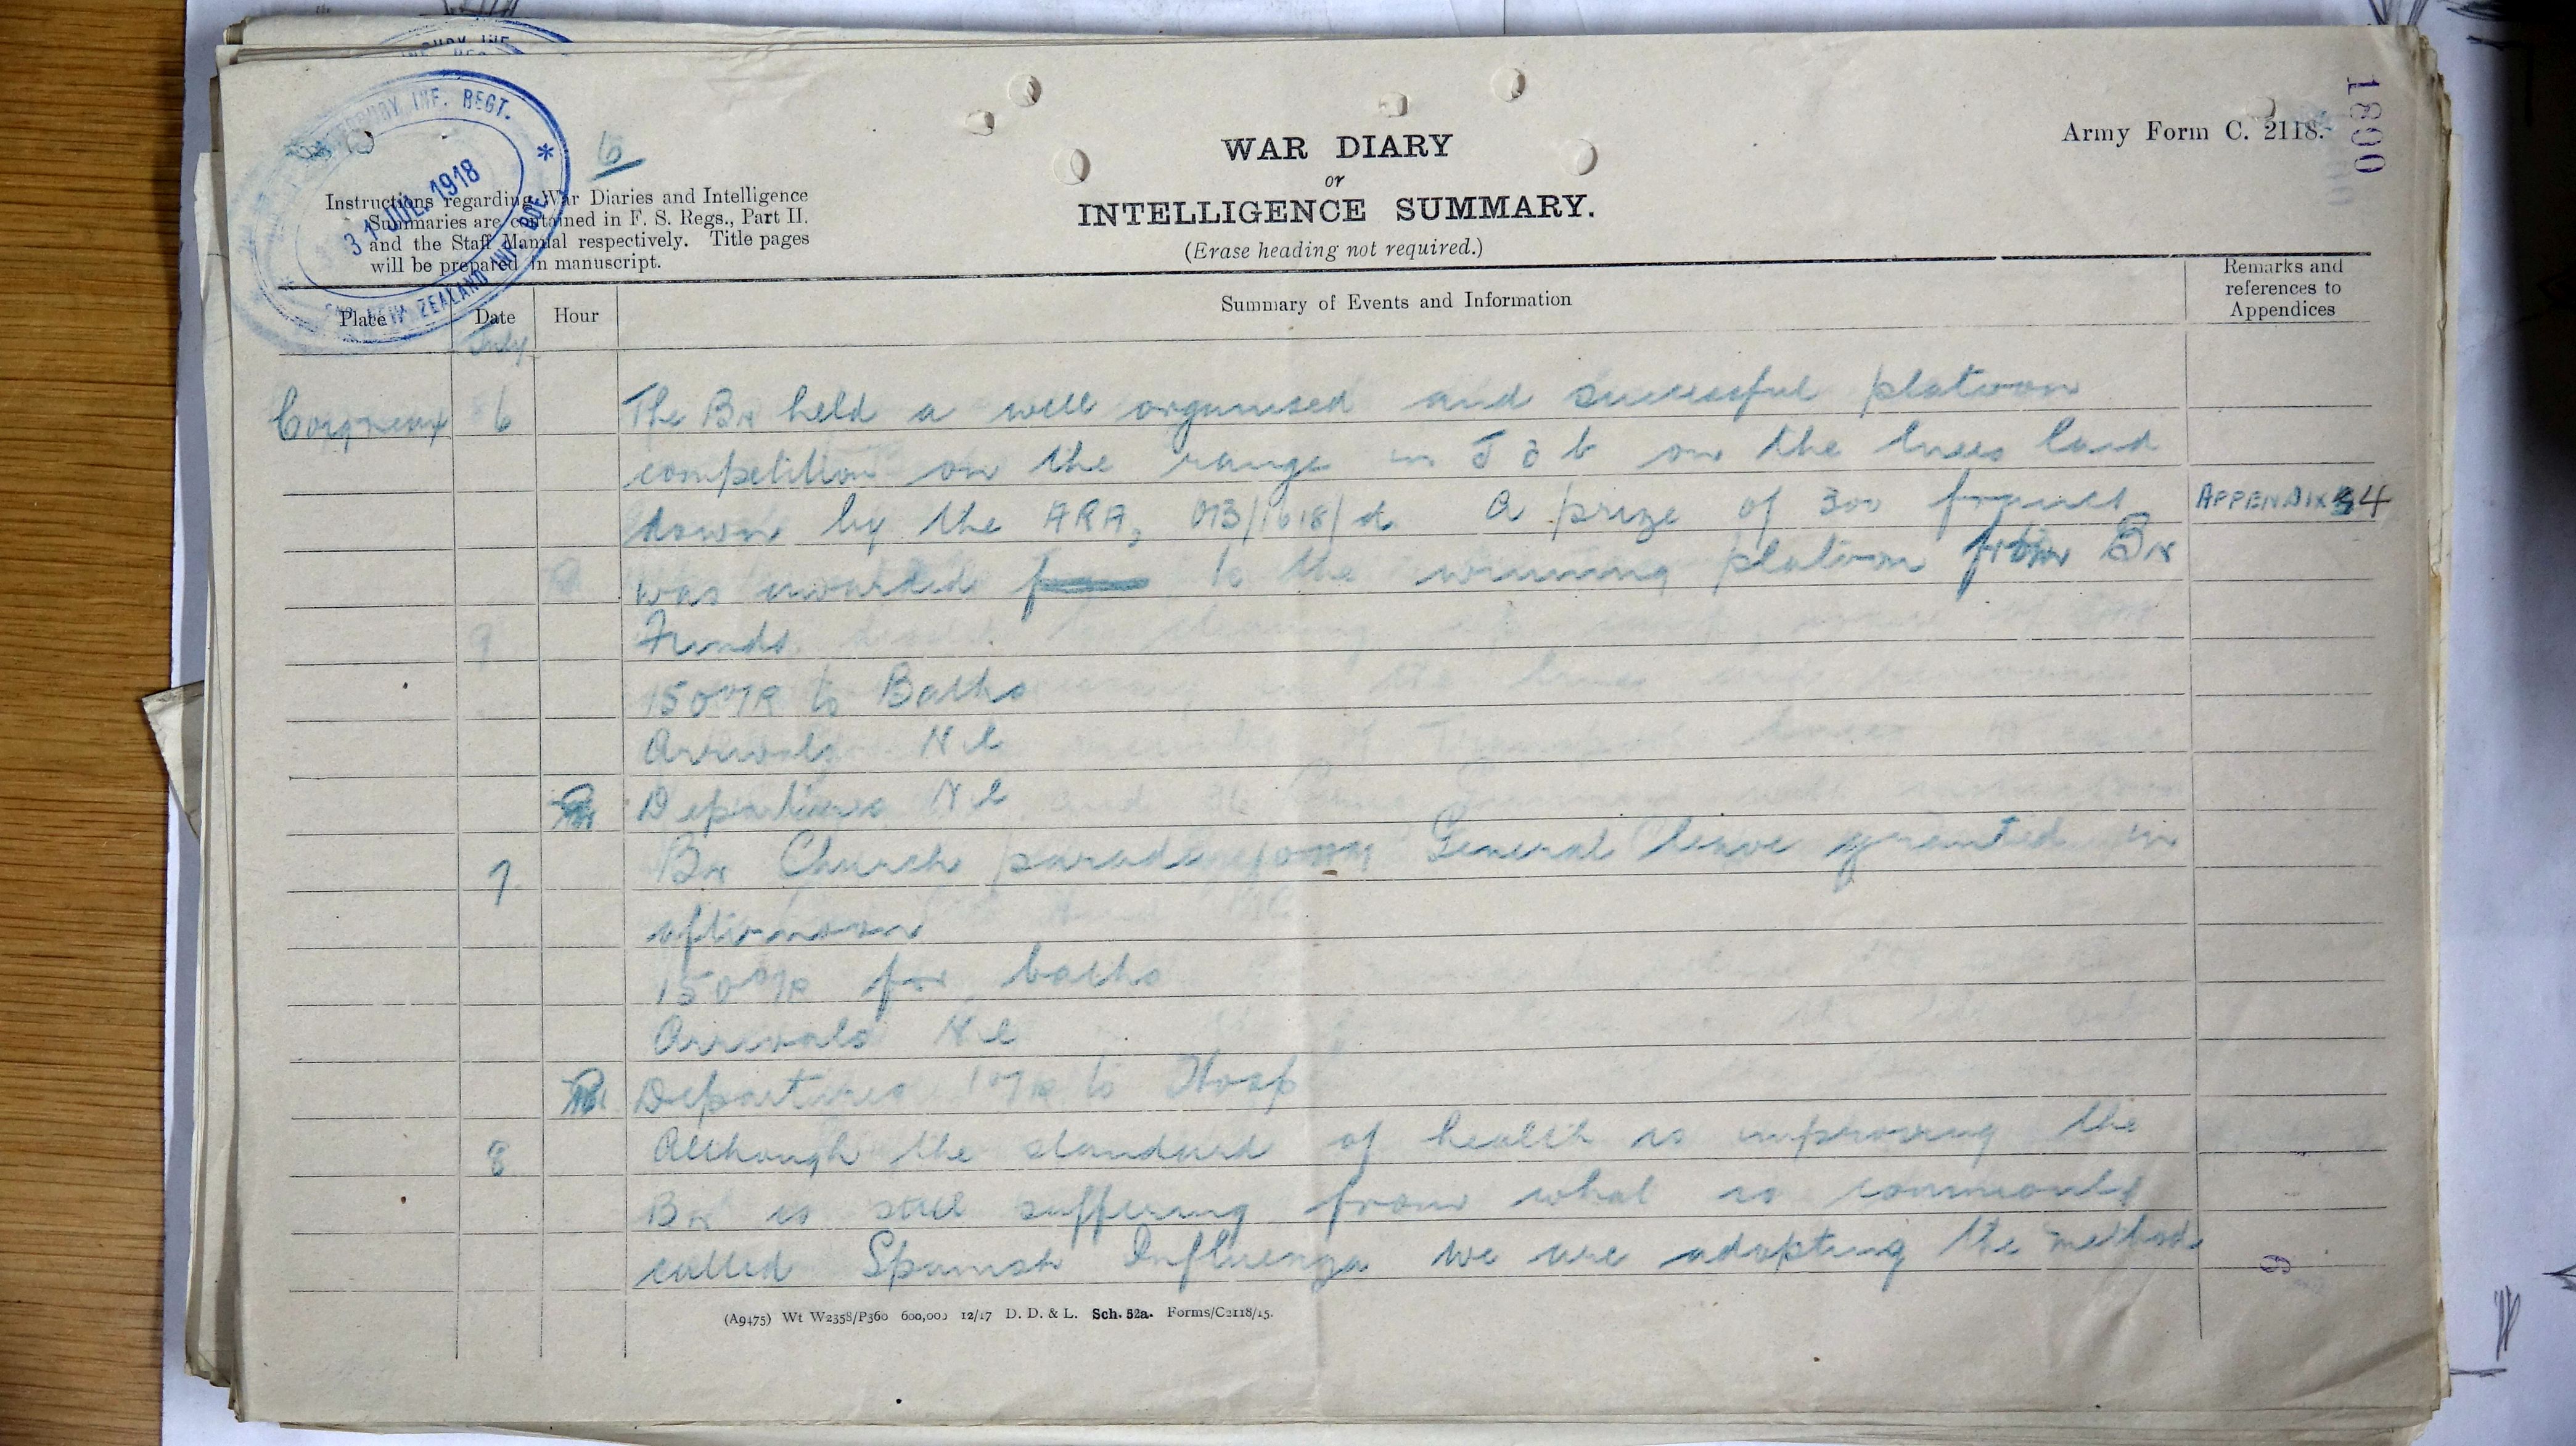 CANTERBURY INF. REGT.
31 JUL 1918
NEW ZEALAND INF. BDE.
6
1800
Army Form C. 2118.
WAR DIARY
or
INTELLIGENCE SUMMARY.
(Erase heading not required.)
Instructions regarding War Diaries and Intelligence
Summaries are contained in F. S. Regs., Part II.
and the Staff Manual respectively. Title pages
will be prepared in manuscript.
Place Date Hour Summary of Events and Information Remarks and
references to
Appendices
July
Coigneux 6 The Bn held a well organised and successful platoon
competition on the range in J 3 b on the lines laid
down by the ARA, A prize of 300 francs APPENDIX 4
was awarded to the winning platoon from Bn
Funds.
150 O/R to Baths
Arrivals Nil
Departures Nil
7. Bn Church parade General leave granted in
afternoon
150 O/R for baths
Arrivals Nil
Departures 1 O/R to Hosp
8 Although the standard of health is improving the
Bn is still suffering from what is commonly
called Spanish Influenza we are adopting the methods
9
(A9475) Wt W2358/P360 600,000 12/17 D. D. & L. Sch. 52a. Forms/C2118/15.